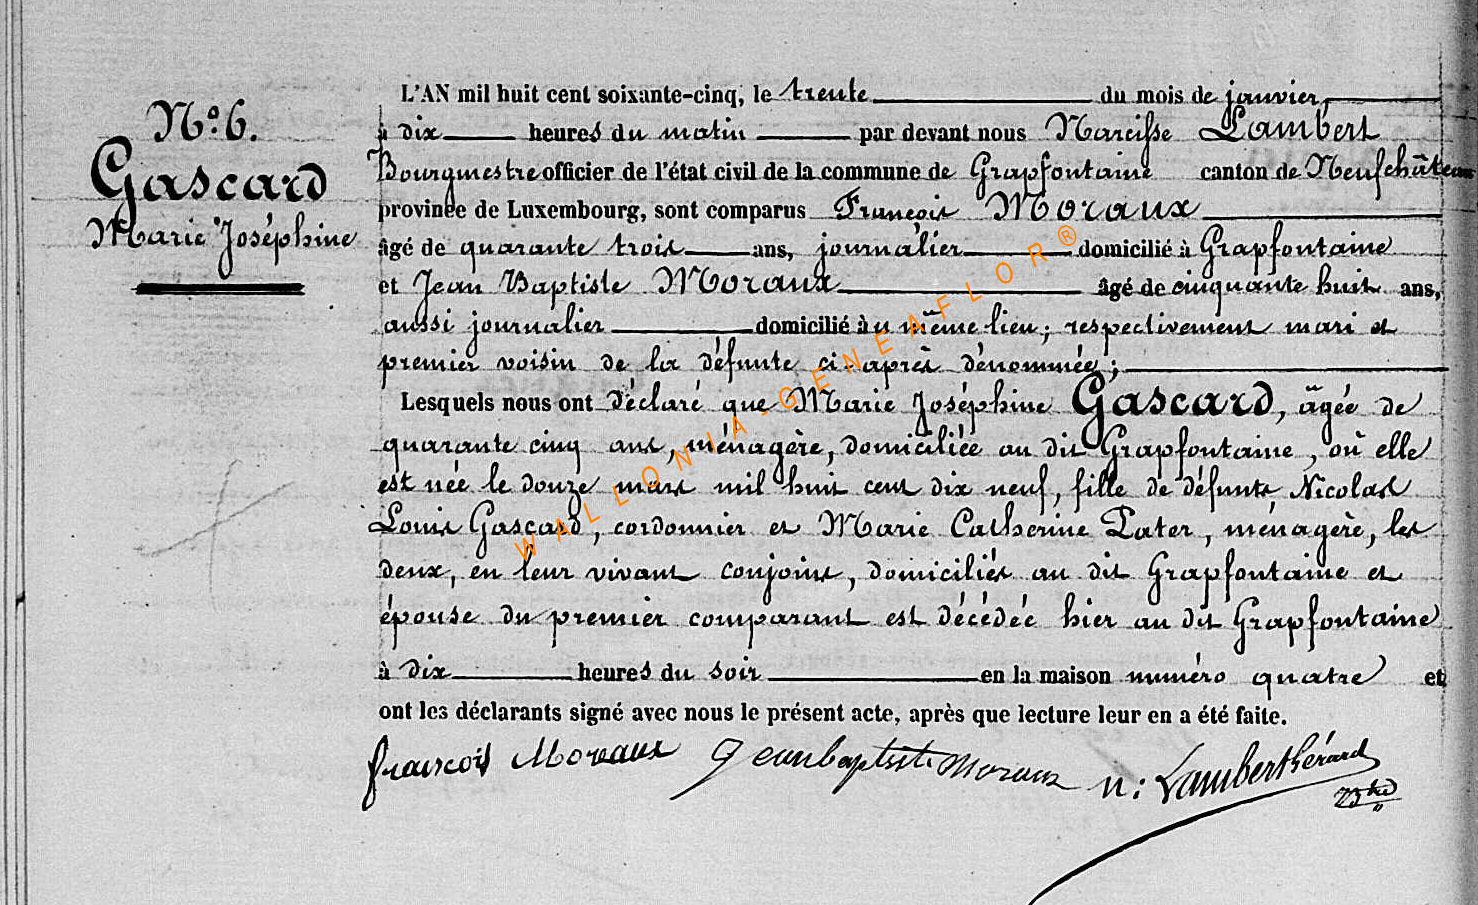 N° 6.
Gascard
Marie Joséphine
L'AN mil huit cent soixante-cinq, le trente du mois de janvier,
à dix heures du matin par devant nous Narcisse Lambert
Bourgmestre officier de l'état civil de la commune de Grapfontaine canton de Neufchâteau
province de Luxembourg, sont comparus François Moraux
âgé de quarante trois ans, journalier domicilié à Grapfontaine
et Jean Baptiste Moraux âgé de cinquante huit ans,
aussi journalier domicilié au même lieu; respectivement mari et
premier voisin de la défunte ci-après dénommée;
Lesquels nous ont déclaré que Marie Joséphine Gascard, âgée de
quarante cinq ans, ménagère, domiciliée au dit Grapfontaine, où elle
est née le douze mars mil huit cent dix neuf, fille de défunts Nicolas
Louis Gascard, cordonnier et Marie Catherine Pater, ménagère, les
deux, en leur vivant conjoins, domiciliés au dit Grapfontaine et
épouse du premier comparant est décédée hier au dit Grapfontaine
à dix heures du soir en la maison numéro quatre et
ont les déclarants signé avec nous le présent acte, après que lecture leur en a été faite.
françois Moraux Jean baptiste moraux n: Lambert hérard
WALLONIA-GENEAFLOR®